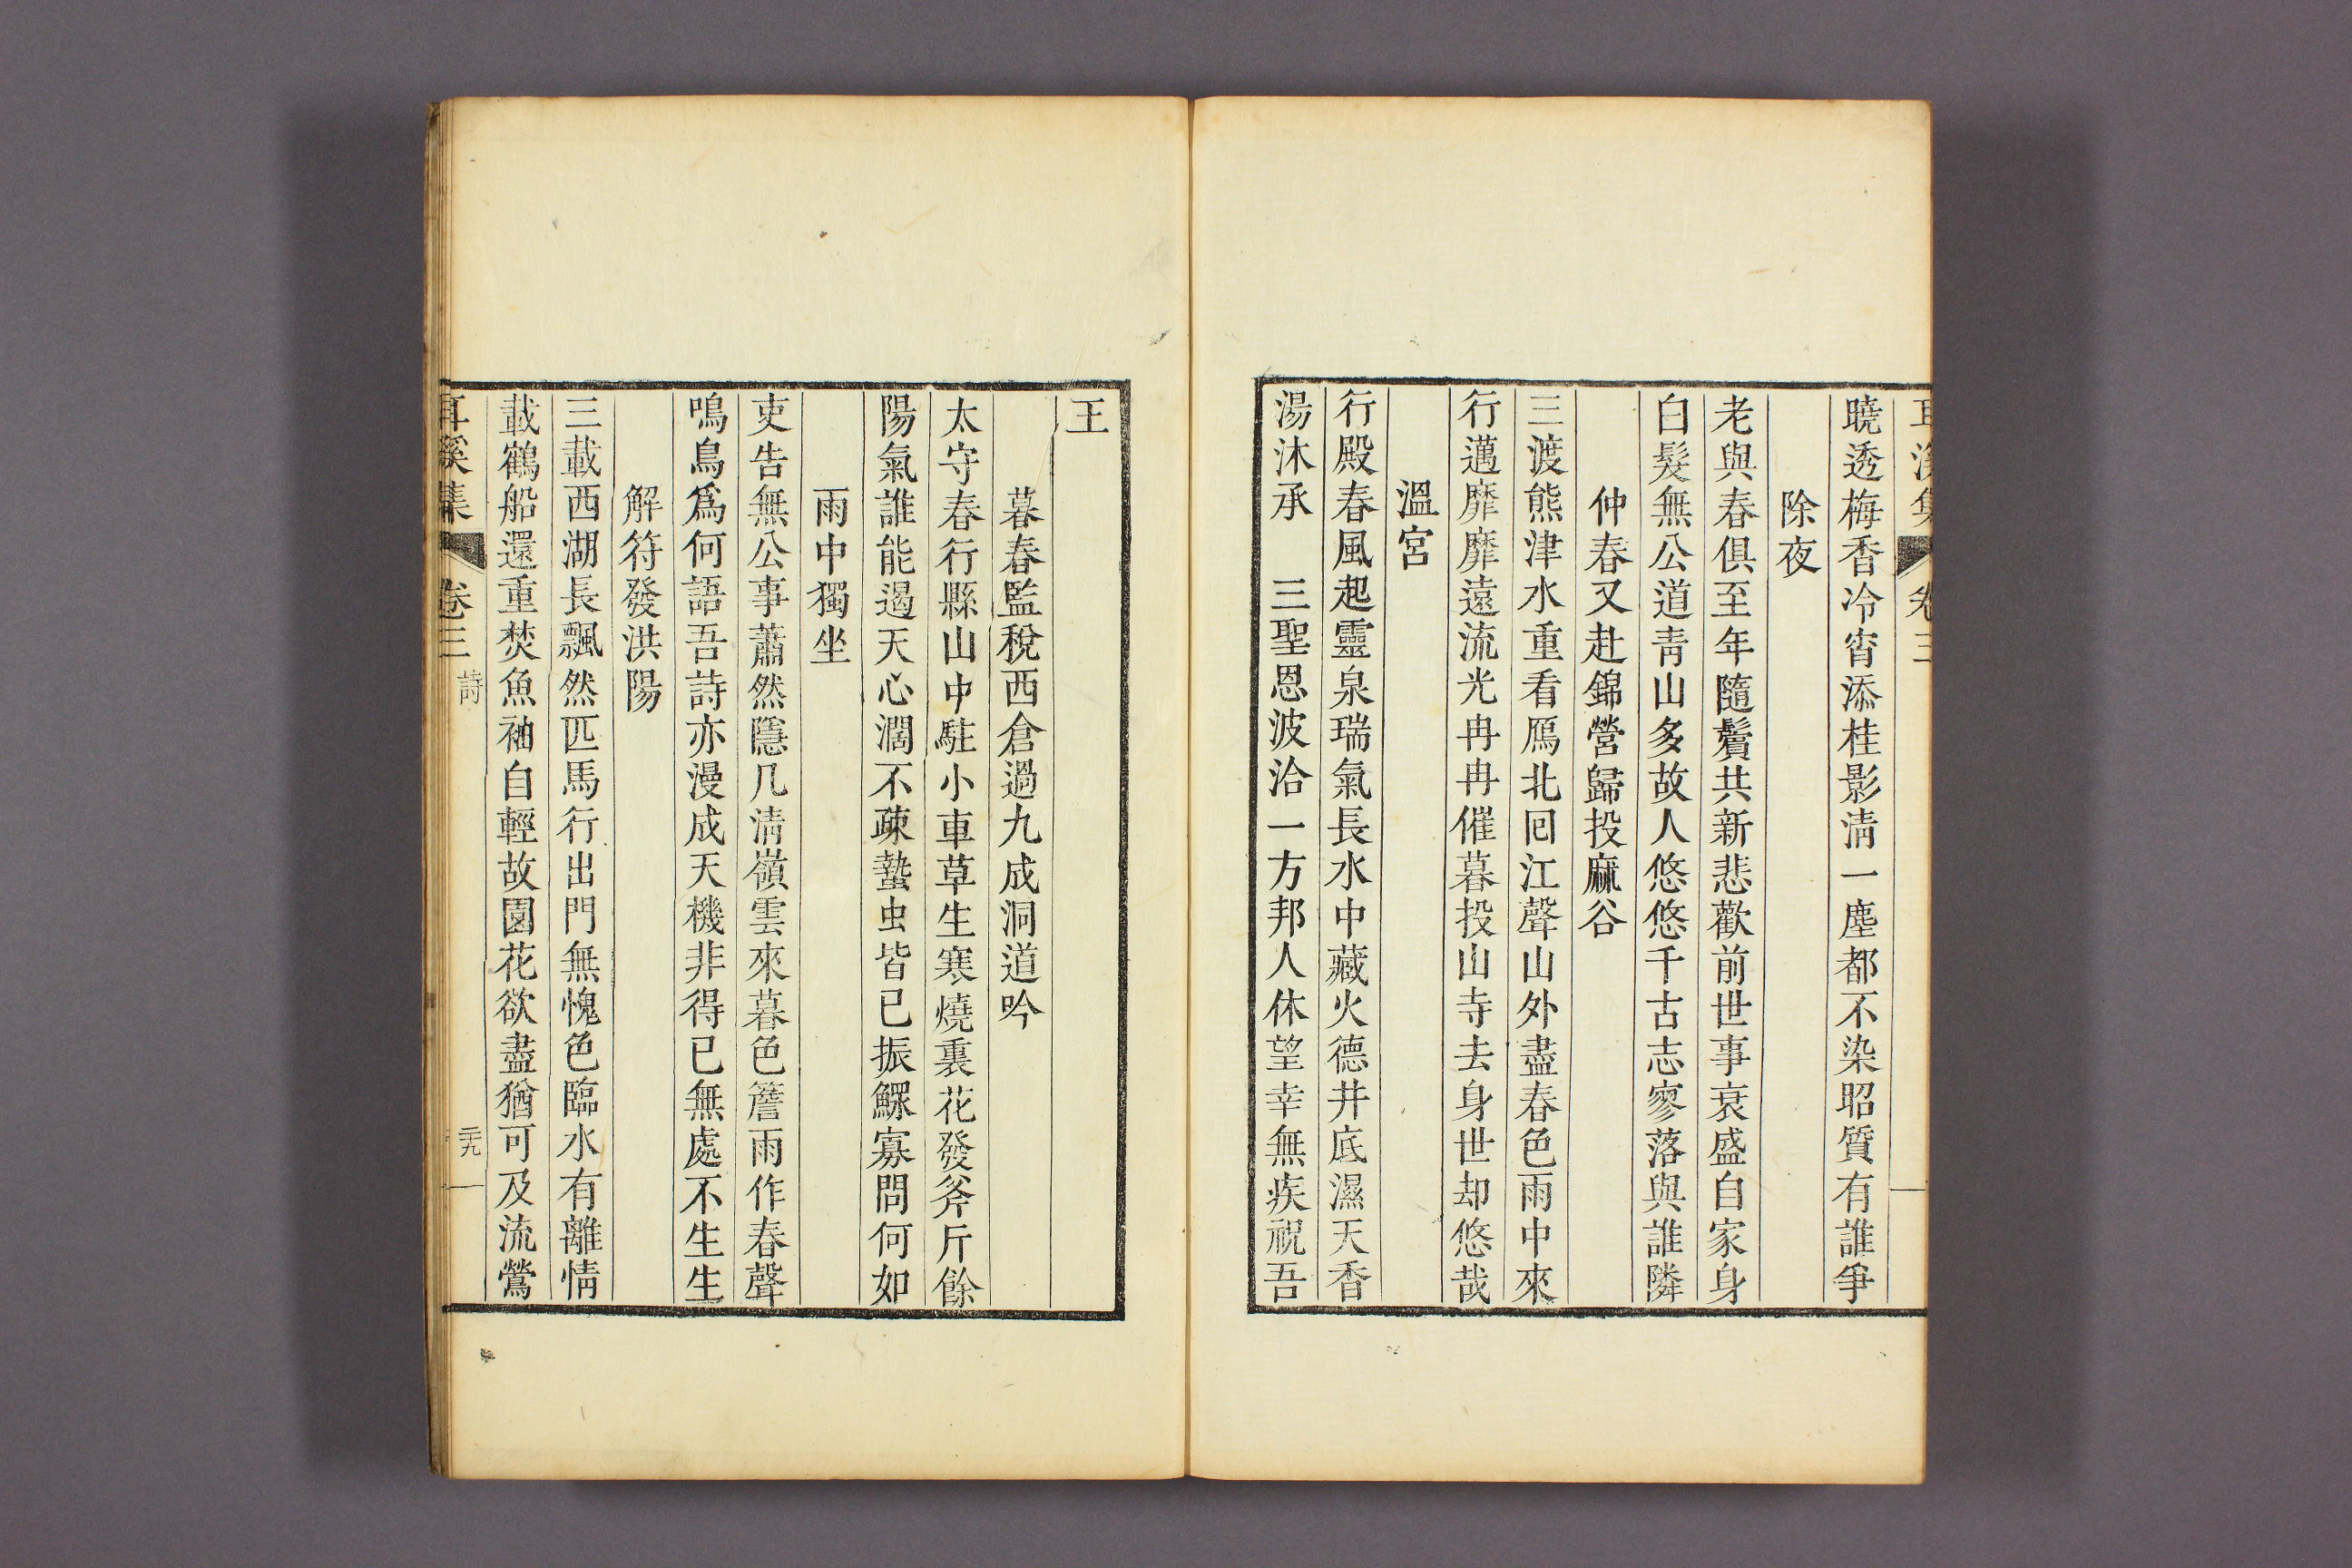 耳溪集 卷三
曉透梅香冷宵添桂影淸一塵都不染昭質有誰爭
除夜
老與春俱至年隨鬢共新悲歡前世事衰盛自家身
白髮無公道靑山多故人悠悠千古志寥落與誰隣
仲春又赴錦營歸投麻谷
三渡熊津水重看鴈北回江聲山外盡春色雨中來
行邁靡靡遠流光冉冉催暮投山寺去身世却悠哉
溫宮
行殿春風起靈泉瑞氣長水中藏火德井底濕天香
湯沐承 三聖恩波洽一方邦人休望幸無疾祝吾
王
暮春監稅西倉過九成洞道吟
太守春行縣山中駐小車草生寒燒裏花發斧斤餘
陽氣誰能遏天心濶不疎蟄虫皆已振鰥寡問何如
雨中獨坐
吏告無公事蕭然隱几淸嶺雲來暮色簷雨作春聲
鳴鳥爲何語吾詩亦漫成天機非得已無處不生生
解符發洪陽
三載西湖長飄然匹馬行出門無愧色臨水有離情
載鶴船還重焚魚袖自輕故園花欲盡猶可及流鶯
耳溪集 卷三 詩 二九